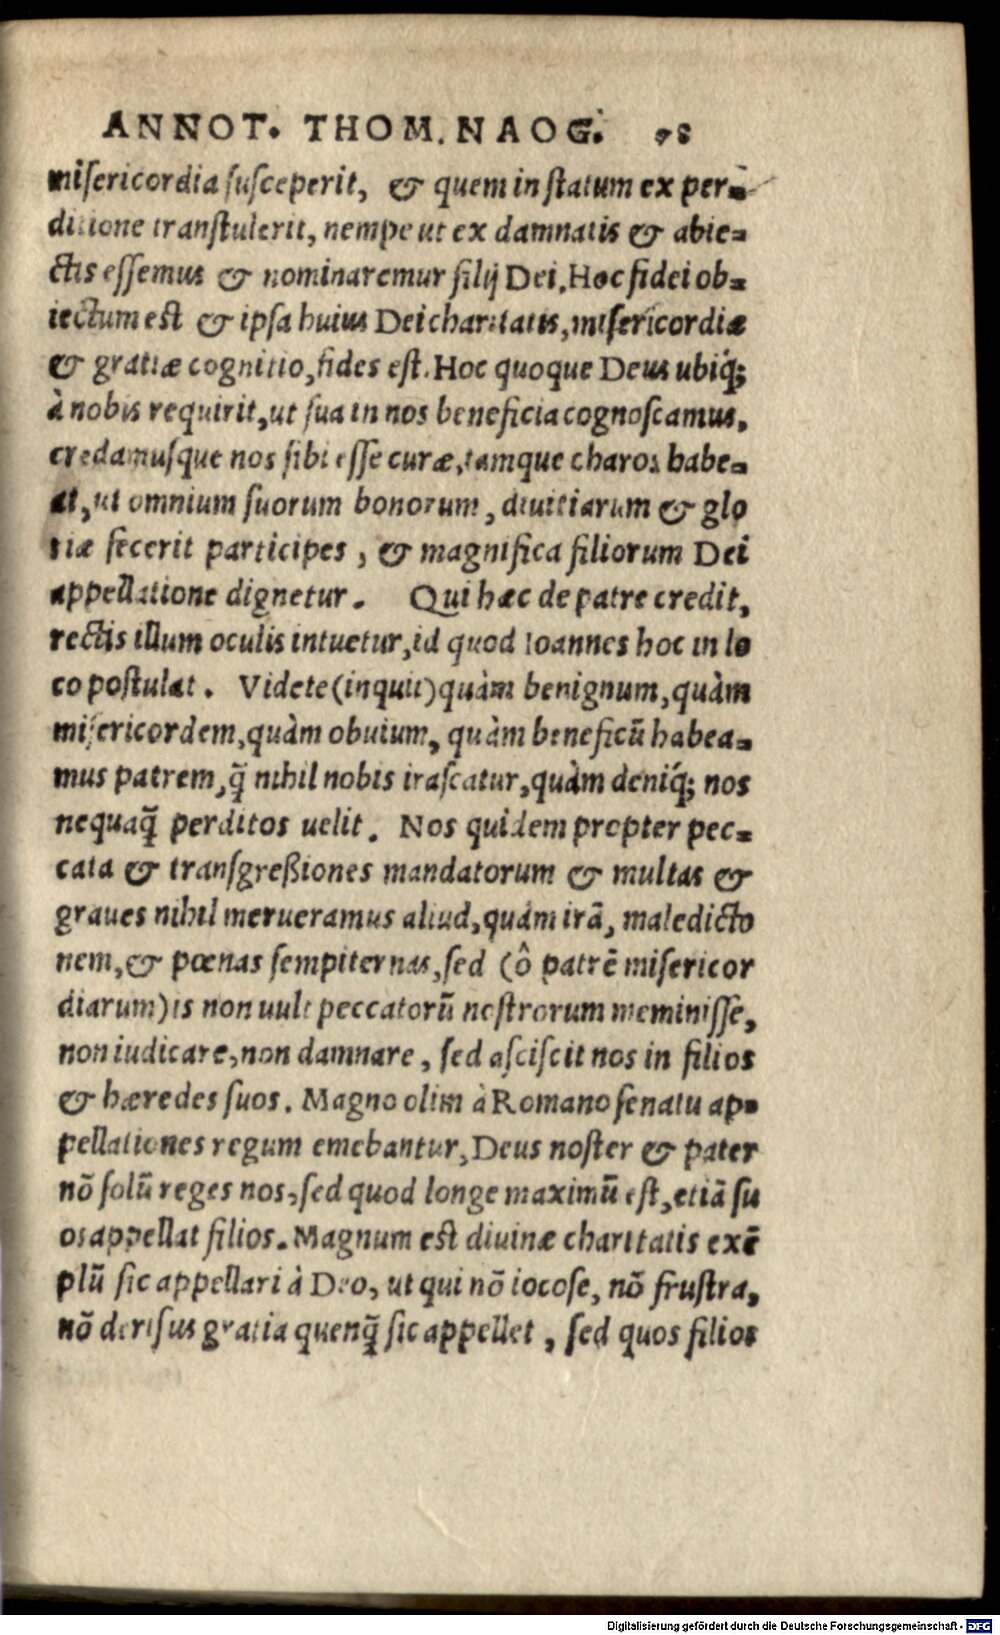 ANNOT. THOM. NAOG. 78
misericordia susceperit, & quem in statum ex per-
ditione transtulerit, nempe ut ex damnatis & abie-
ctis essemus & nominaremur filij Dei. Hoc fidei ob-
iectum est & ipsa huius Dei charitatis, misericordiæ
& gratiæ cognitio, fides est. Hoc quoque Deus ubiq;
à nobis requirit, ut sua in nos beneficia cognoscamus,
credamusque nos sibi esse curæ, tamque charos habe-
at, ut omnium suorum bonorum, diuitiarum & glo
riæ fecerit participes, & magnifica filiorum Dei
appellatione dignetur. Qui hæc de patre credit,
rectis illum oculis intuetur, id quod Ioannes hoc in lo
co postulat. Videte (inquit) quàm benignum, quàm
misericordem, quàm obuium, quàm beneficū habea-
mus patrem, q̃ nihil nobis irascatur, quàm deniq; nos
nequaq̃ perditos uelit. Nos quidem propter pec-
cata & transgreßiones mandatorum & multas &
graues nihil merueramus aliud, quàm irã, maledicto
nem, & pœnas sempiternas, sed (ô patrẽ misericor
diarum) is non uult peccatorũ nostrorum meminisse,
non iudicare, non damnare, sed asciscit nos in filios
& hæredes suos. Magno olim à Romano senatu ap-
pellationes regum emebantur, Deus noster & pater
nõ solũ reges nos, sed quod longe maximũ est, etiã su
os appellat filios. Magnum est diuinæ charitatis exẽ
plũ sic appellari à Deo, ut qui nõ iocose, nõ frustra,
nõ derisus gratia quenq̃ sic appellet, sed quos filios
Digitalisierung gefördert durch die Deutsche Forschungsgemeinschaft - DFG